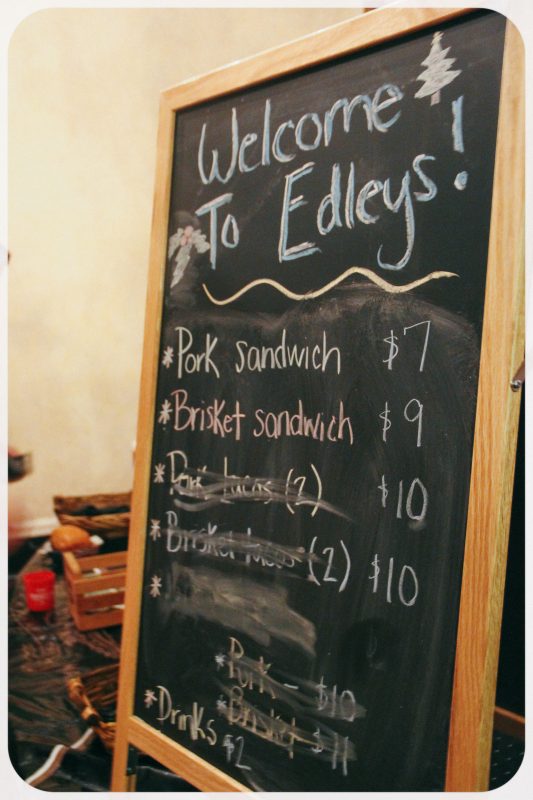 Welcome
To Edleys!
*Pork sandwich $7
*Brisket sandwich $9
*Pork tacos (2) $10
*Brisket tacos (2) $10
*
*Pork - $10
*Brisket $11
*Drinks $2